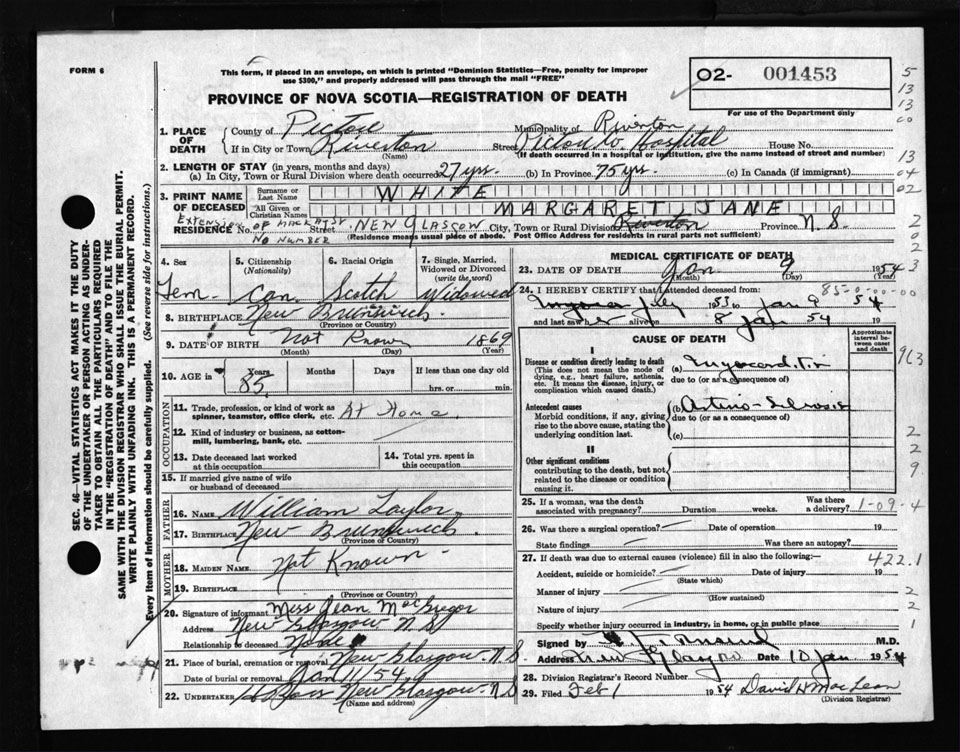 FORM 6
This form, if placed in an envelope, on which is printed "Dominion Statistics—Free, penalty for improper
use $300," and properly addressed will pass through the mail "FREE"
02- 001453
PROVINCE OF NOVA SCOTIA—REGISTRATION OF DEATH
For use of the Department only
1. PLACE OF DEATH
County of Pictou Municipality of Riverton
If in City or Town Riverton (Name) Street Pictou Co. Hospital House No.
(If death occurred in a hospital or institution, give the name instead of street and number)
2. LENGTH OF STAY (in years, months and days)
(a) In City, Town or Rural Division where death occurred 27 yrs. (b) In Province 75 yrs. (c) In Canada (if immigrant)
3. PRINT NAME OF DECEASED
Surname or Last Name WHITE
All Given or Christian Names MARGARET JANE
Extension of MacKay St
RESIDENCE No. No Number Street NEW GLASGOW City, Town or Rural Division Riverton Province N.S.
(Residence means usual place of abode. Post Office Address for residents in rural parts not sufficient)
4. Sex Fem.
5. Citizenship (Nationality) Can.
6. Racial Origin Scotch
7. Single, Married, Widowed or Divorced (write the word) Widowed
8. BIRTHPLACE New Brunswick
(Province or Country)
9. DATE OF BIRTH Not Known 1869
(Month) (Day) (Year)
10. AGE in Years 85 Months Days If less than one day
hrs. or min.
OCCUPATION
11. Trade, profession, or kind of work as spinner, teamster, office clerk, etc. At Home
12. Kind of industry or business, as cotton-mill, lumbering, bank, etc.
13. Date deceased last worked at this occupation
14. Total yrs. spent in this occupation
15. If married give name of wife or husband of deceased
FATHER
16. NAME William Taylor
17. BIRTHPLACE New Brunswick
(Province or Country)
MOTHER
18. MAIDEN NAME Not Known
19. BIRTHPLACE
(Province or Country)
20. Signature of informant Miss Jean MacGregor
Address New Glasgow N.S.
Relationship to deceased None
21. Place of burial, cremation or removal New Glasgow N.S.
Date of burial or removal Jan 11/54
22. UNDERTAKER New Glasgow N.S
(Name and address)
MEDICAL CERTIFICATE OF DEATH
23. DATE OF DEATH Jan 9 1954
(Month) (Day)
24. I HEREBY CERTIFY that I attended deceased from: 85-0-00-00
July 1953 to Jan 9 54
and last saw her alive on 8 Jan 54 19
CAUSE OF DEATH
Approximate interval between onset and death
I
Disease or condition directly leading to death
(This does not mean the mode of dying, e.g., heart failure, asthenia, etc. It means the disease, injury, or complication which caused death.
(a)
due to (or as a consequence of)
Antecedent causes
Morbid conditions, if any, giving rise to the above cause, stating the underlying condition last.
(b)
due to (or as a consequence of)
(c)
II
Other significant conditions
contributing to the death, but not related to the disease or condition causing it.
25. If a woman, was the death associated with pregnancy? Duration weeks. Was there a delivery? 1-09-4
26. Was there a surgical operation? Date of operation 19
State findings Was there an autopsy?
27. If death was due to external causes (violence) fill in also the following:— 422.1
Accident, suicide or homicide? Date of injury 19
(State which)
Manner of injury
(How sustained)
Nature of injury
Specify whether injury occurred in industry, in home, or in public place
Signed by M.D.
Address New Glasgow Date 10 Jan 1954
28. Division Registrar's Record Number
29. Filed Feb 1 1954 David H MacLean
(Division Registrar)
SEC. 46—VITAL STATISTICS ACT MAKES IT THE DUTY
OF THE UNDERTAKER OR PERSON ACTING AS UNDER-
TAKER TO OBTAIN ALL THE PARTICULARS REQUIRED
IN THE "REGISTRATION OF DEATH" AND TO FILE THE
SAME WITH THE DIVISION REGISTRAR WHO SHALL ISSUE THE BURIAL PERMIT.
WRITE PLAINLY WITH UNFADING INK. THIS IS A PERMANENT RECORD.
Every item of information should be carefully supplied. (See reverse side for instructions.)
5
13
13
13
04
02
2
0
2
3
963
2
2
9
2
2
1